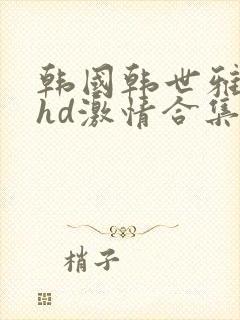 韩国韩世雅
hd激情合集
梢子